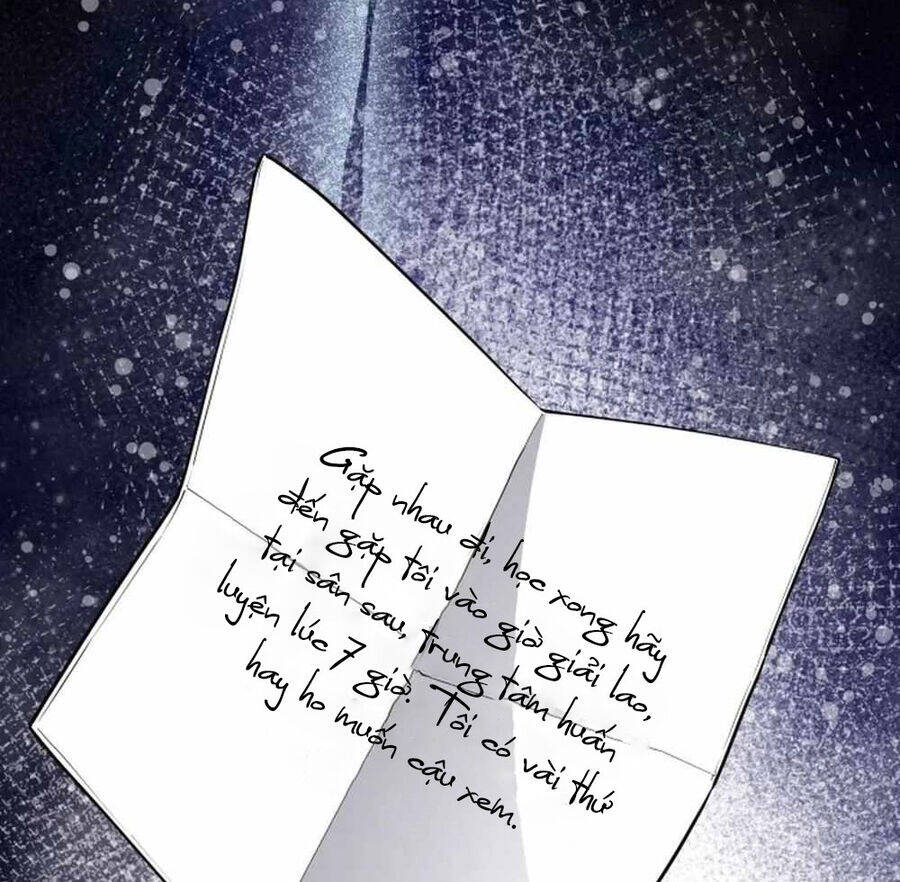 Gặp nhau đi, học xong hãy
đến gặp tôi vào giờ giải lao,
tại sân sau, trung tâm huấn
luyện lúc 7 giờ. Tôi có vài thứ
hay ho muốn cậu xem.